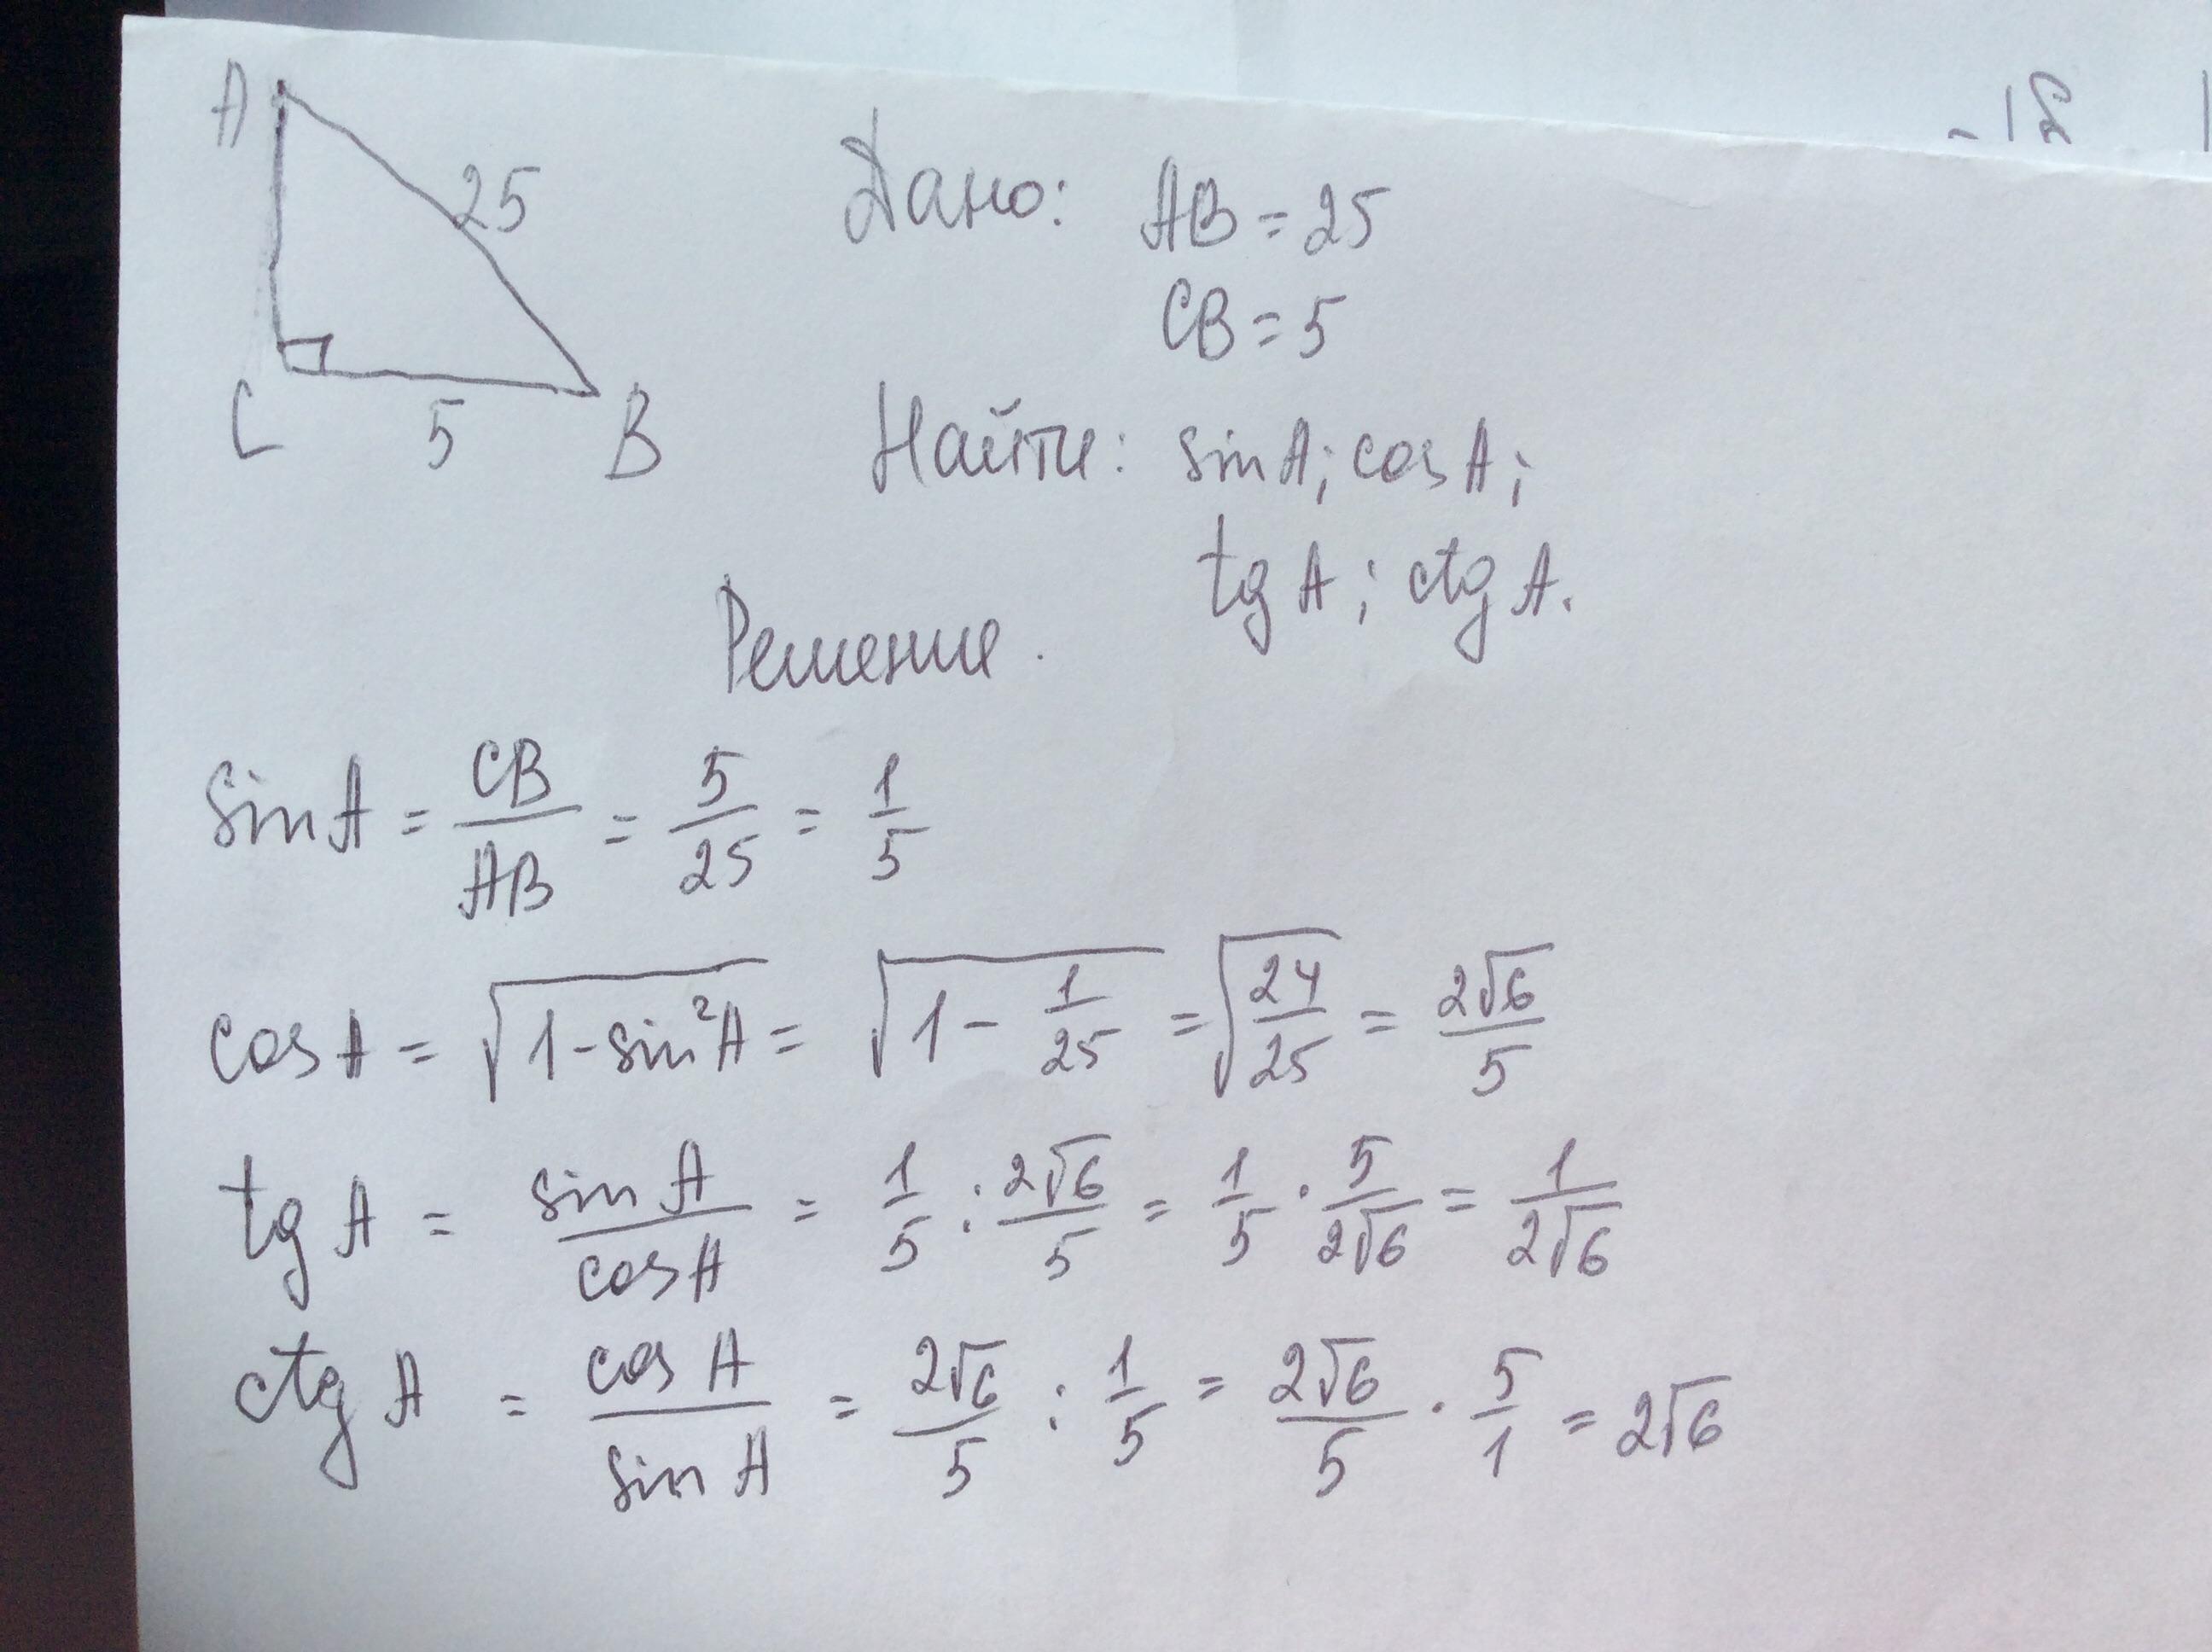 A
25
C
5
B
Дано: AB = 25
CB = 5
Найти: sin A; cos A;
tg A; ctg A.
Решение.
sin A = CB/AB = 5/25 = 1/5
cos A = √(1-sin²A) = √(1 - 1/25) = √(24/25) = 2√6/5
tg A = sin A/cos A = 1/5 : 2√6/5 = 1/5 · 5/2√6 = 1/2√6
ctg A = cos A/sin A = 2√6/5 : 1/5 = 2√6/5 · 5/1 = 2√6